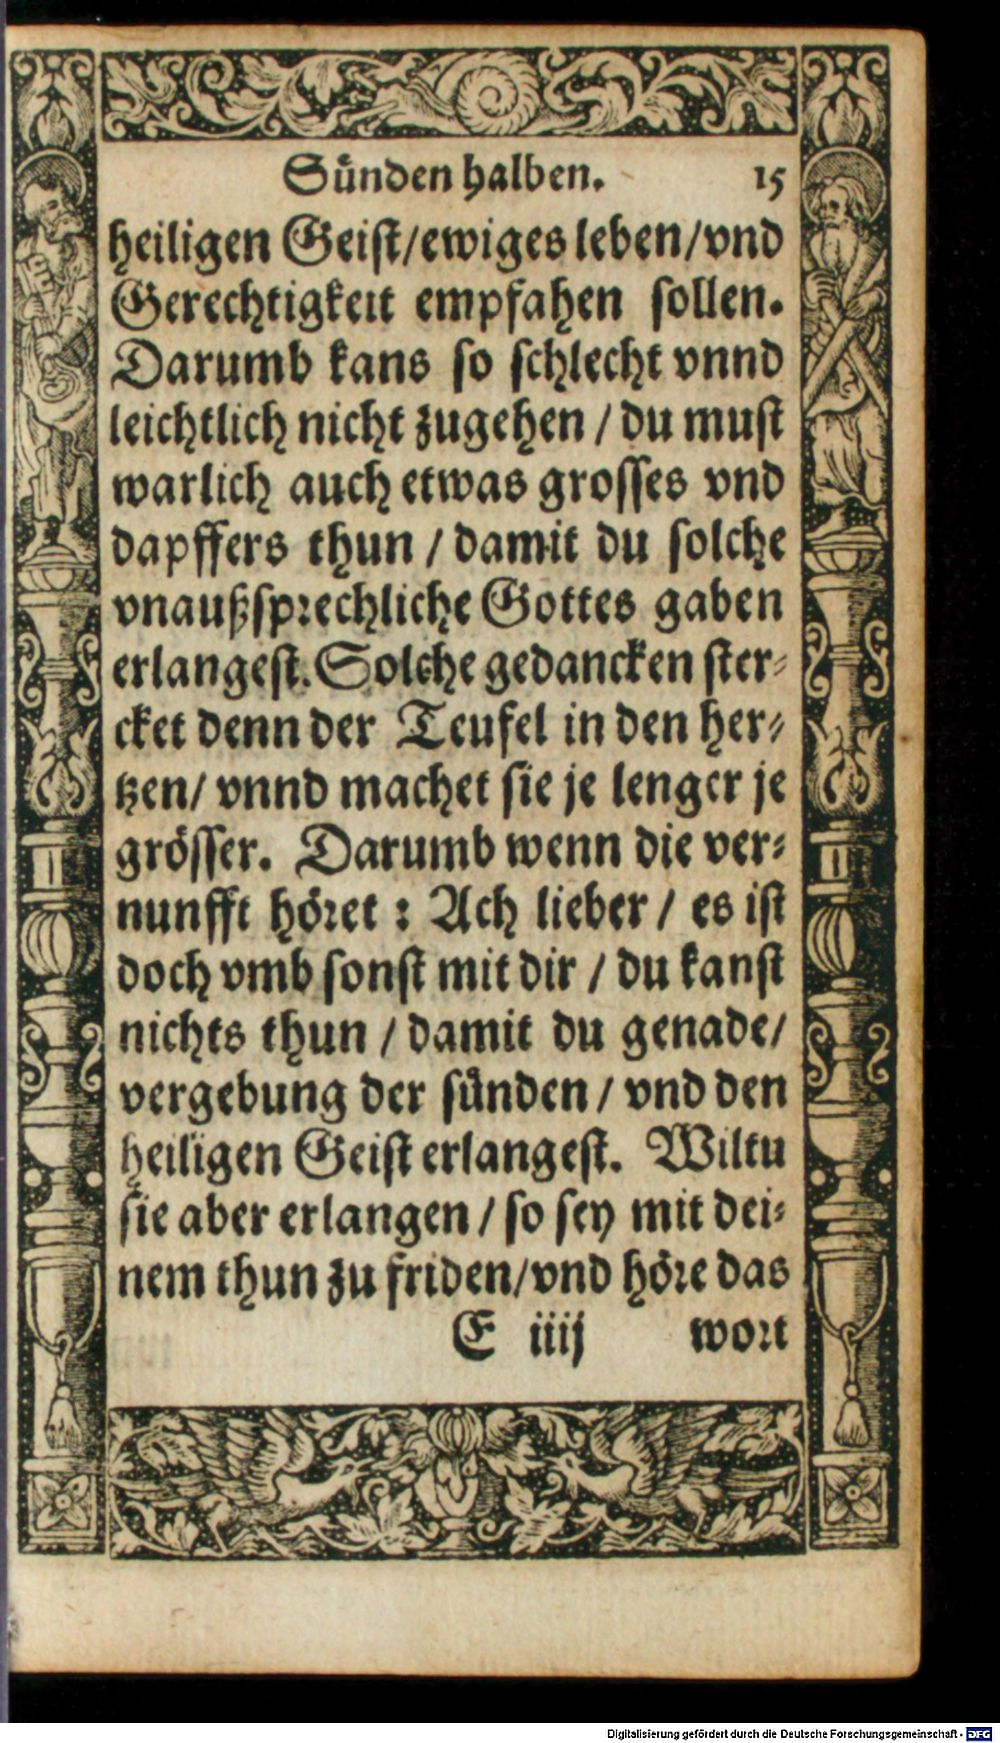 Sünden halben. 15
heiligen Geist/ewiges leben/vnd
Gerechtigkeit empfahen sollen.
Darumb kans so schlecht vnnd
leichtlich nicht zugehen / du must
warlich auch etwas grosses vnd
dapffers thun / damit du solche
vnaußsprechliche Gottes gaben
erlangest. Solche gedancken ster-
cket denn der Teufel in den her-
tzen/ vnnd machet sie je lenger je
grösser. Darumb wenn die ver-
nunfft höret : Ach lieber / es ist
doch vmb sonst mit dir / du kanst
nichts thun / damit du genade/
vergebung der sünden / vnd den
heiligen Geist erlangest. Wiltu
sie aber erlangen / so sey mit dei-
nem thun zu friden/vnd höre das
E iiij wort
Digitalisierung gefördert durch die Deutsche Forschungsgemeinschaft - DFG